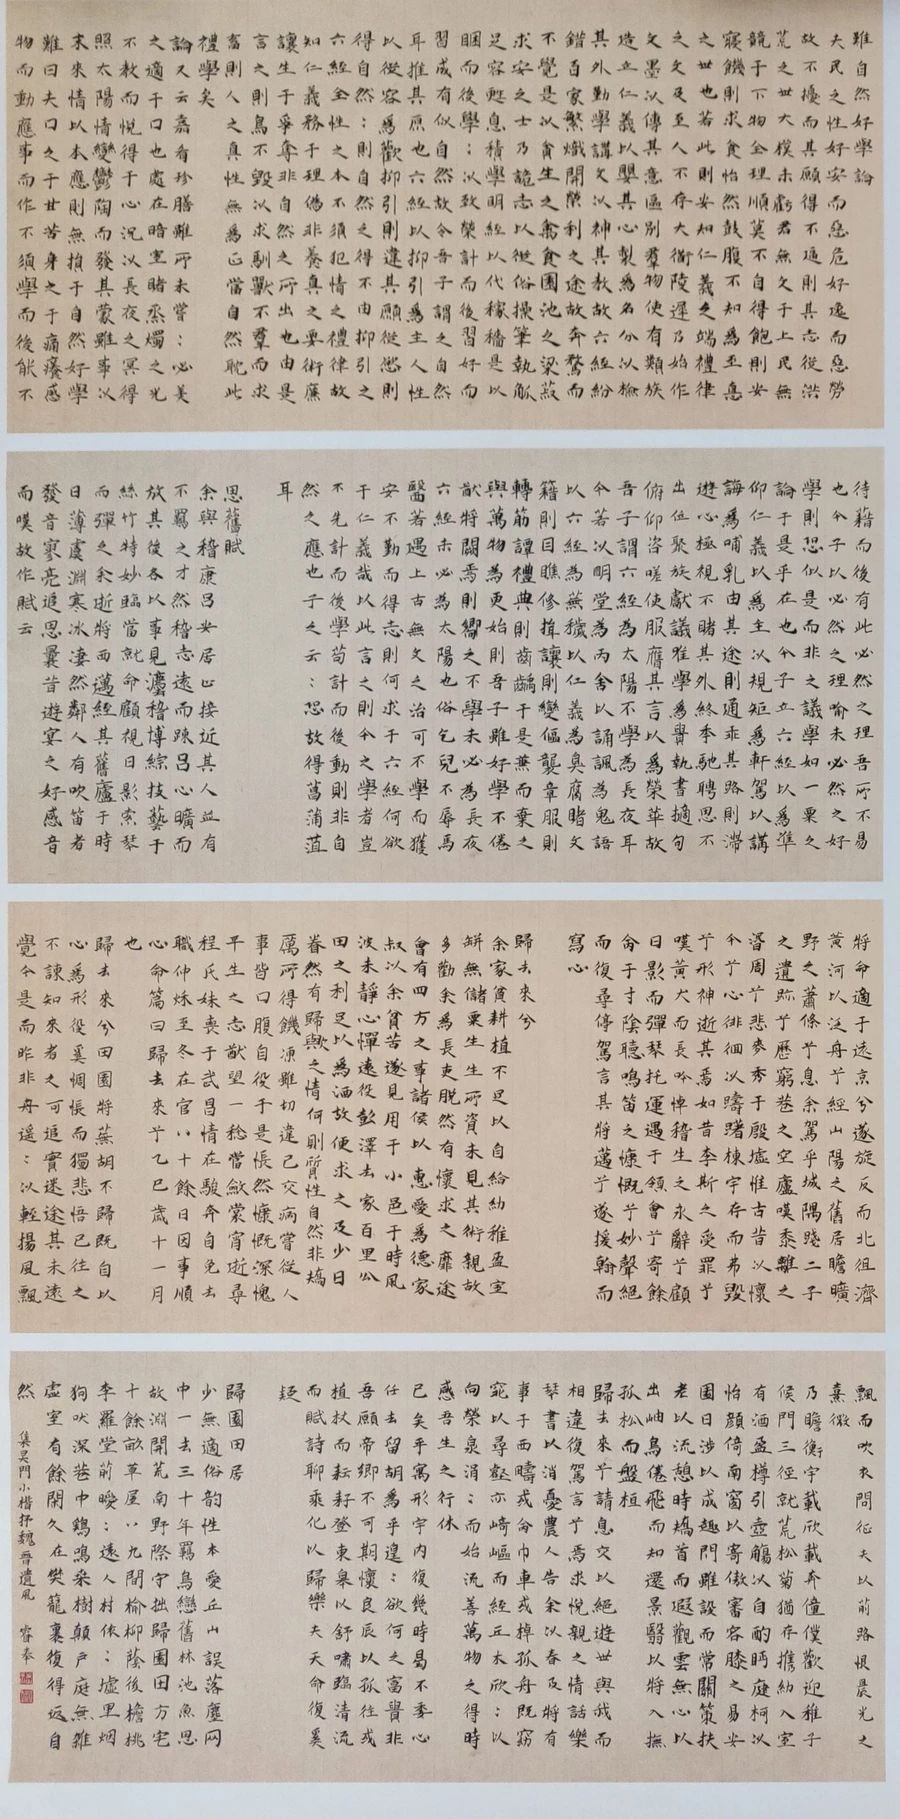 難自然好學論
夫民之性好安而惡危好逸而惡勞
故不擾而其願得不逼則其志從洪
荒之世大樸未虧君無文于上民無
競于下物全理順莫不自得飽則安
寢饑則求食怡然鼓腹不知爲至悳
之世也若此則安知仁義之端禮律
之文及至人不存大衜陵遲乃始作
文墨以傳其意區別羣物使有類族
造立仁義以嬰其心製爲名分以檢
其外勤學講文以神其教故六經紛
錯百家繁熾開榮利之途故奔騖而
不覺是以貪生之禽食園池之梁菽
求安之士乃詭志以從俗操筆執觚
足容甦息積學明經以代稼穡是以
困而後學:以致榮計而後習好而
習成有似自然故令吾子謂之自然
耳推其原也六經以抑引爲主人性
以從容爲歡抑引則違其願從慾則
得自然:則自然之得不由抑引之
六經全性之本不須犯情之禮律故
知仁義務于理僞非養真之要術廉
讓生于爭奪非自然之所出也由是
言之則鳥不毀以求馴獸不羣而求
畜則人之真性無爲正當自然耽此
禮學矣
論又云嘉肴珍膳雖所未嘗:必美
之適于口也處在暗室睹烝燭之光
不教而悅得于心況以長夜之冥得
照太陽情變鬱陶而發其蒙雖事以
末來情以本應則無損于自然好學
難曰夫口之于甘苦身之于痛癢感
物而動應事而作不須學而後能不
待藉而後有此必然之理吾所不易
也今子以必然之理喻未必然之好
學則恐似是而非之議學如一粟之
論于是乎在也今子立六經以爲準
仰仁義以爲主以規矩爲軒駕以講
誨爲哺乳由其途則通乖其路則滯
遊心極視不睹其外終年馳騁思不
出位聚族獻議唯學爲貴執書擿句
俯仰咨嗟使服膺其言以爲榮華故
吾子謂六經爲太陽不學爲長夜耳
今若以明堂爲丙舍以誦諷爲鬼語
以六經爲蕪穢以仁義爲臭腐睹文
籍則目瞧修揖讓則變傴襲章服則
轉筋譚禮典則齒齲于是兼而棄之
與萬物爲更始則吾子雖好學不倦
猷將闕焉則嚮之不學未必爲長夜
六經未必爲太陽也俗乞兒不辱馬
醫若遇上古無文之治可不學而獲
安不勤而得志則何求于六經何欲
于仁義哉以此言之則今之學者豈
不先計而後學苟計而後動則非自
然之應也子之云:恐故得菖蒲菹
耳
思舊賦
余與嵇康呂安居止接近其人並有
不羈之才然嵇志遠而疎呂心曠而
放其後各以事見灋嵇博綜技藝于
絲竹特妙臨當就命顧視日影索琴
而彈之余逝將西邁經其舊廬于時
日薄虞淵寒冰淒然鄰人有吹笛者
發音寥亮追思曩昔遊宴之好感音
而嘆故作賦云
將命適于遠京兮遂旋反而北徂濟
黃河以泛舟兮經山陽之舊居瞻曠
野之蕭條兮息余駕乎城隅踐二子
之遺跡兮歷窮巷之空廬嘆黍離之
湣周兮悲麥秀于殷墟惟古昔以懷
今兮心徘徊以躊躇棟宇存而弗毀
兮形神逝其焉如昔李斯之受罪兮
嘆黃犬而長吟悼嵇生之永辭兮顧
日影而彈琴托運遇于領會兮寄餘
命于寸陰聽鳴笛之慷慨兮妙聲絕
而復尋停駕言其將邁兮遂援翰而
寫心
歸去來兮
余家貧耕植不足以自給幼稚盈室
缾無儲粟生生所資未見其術親故
多勸余爲長吏脫然有懷求之靡途
會有四方之事諸侯以惠愛爲德家
叔以余貧苦遂見用于小邑于時風
波未靜心憚遠役彭澤去家百里公
田之利足以爲酒故便求之及少日
眷然有歸歟之情何則質性自然非矯
厲所得饑凍雖切違己交病嘗從人
事皆口腹自役于是悵然慷慨深愧
平生之志猷望一稔當斂裳宵逝尋
程氏妹喪于武昌情在駿奔自免去
職仲秌至冬在官八十餘日因事順
心命篇曰歸去來兮乙巳歲十一月
也
歸去來兮田園將蕪胡不歸既自以
心爲形役奚惆悵而獨悲悟已往之
不諫知來者之可追實迷途其未遠
覺今是而昨非舟遥:以輕揚風飄
飄而吹衣問征夫以前路恨晨光之
熹微
乃瞻衡宇載欣載奔僮僕歡迎稚子
候門三徑就荒松菊猶存攜幼入室
有酒盈樽引壺觴以自酌眄庭柯以
怡顏倚南窗以寄傲審容膝之易安
園日涉以成趣門雖設而常關策扶
老以流憩時矯首而遐觀雲無心以
出岫鳥倦飛而知還景翳以將入撫
孤松而盤桓
歸去來兮請息交以絕遊世與我而
相違復駕言兮焉求悅親之情話樂
琴書以消憂農人告余以春及將有
事于西疇或命巾車或棹孤舟既窈
窕以尋壑亦崎嶇而經丘木欣:以
向榮泉涓:而始流善萬物之得時
感吾生之行休
已矣乎寓形宇內復幾時曷不委心
任去留胡爲乎遑:欲何之富貴非
吾願帝鄉不可期懷良辰以孤往或
植杖而耘耔登東皋以舒嘯臨清流
而賦詩聊乘化以歸樂夫天命復奚
疑
歸園田居
少無適俗韵性本愛丘山誤落塵网
中一去三十年羈鳥戀舊林池魚思
故淵開荒南野際守拙歸園田方宅
十餘畝草屋八九間榆柳蔭後檐桃
李羅堂前曖:遠人村依:墟里烟
狗吠深巷中鷄鳴桑樹顛戶庭無雜
虛室有餘閑久在樊籠裏復得返自
然
集吴門小楷抒魏晉遺風 睿奉